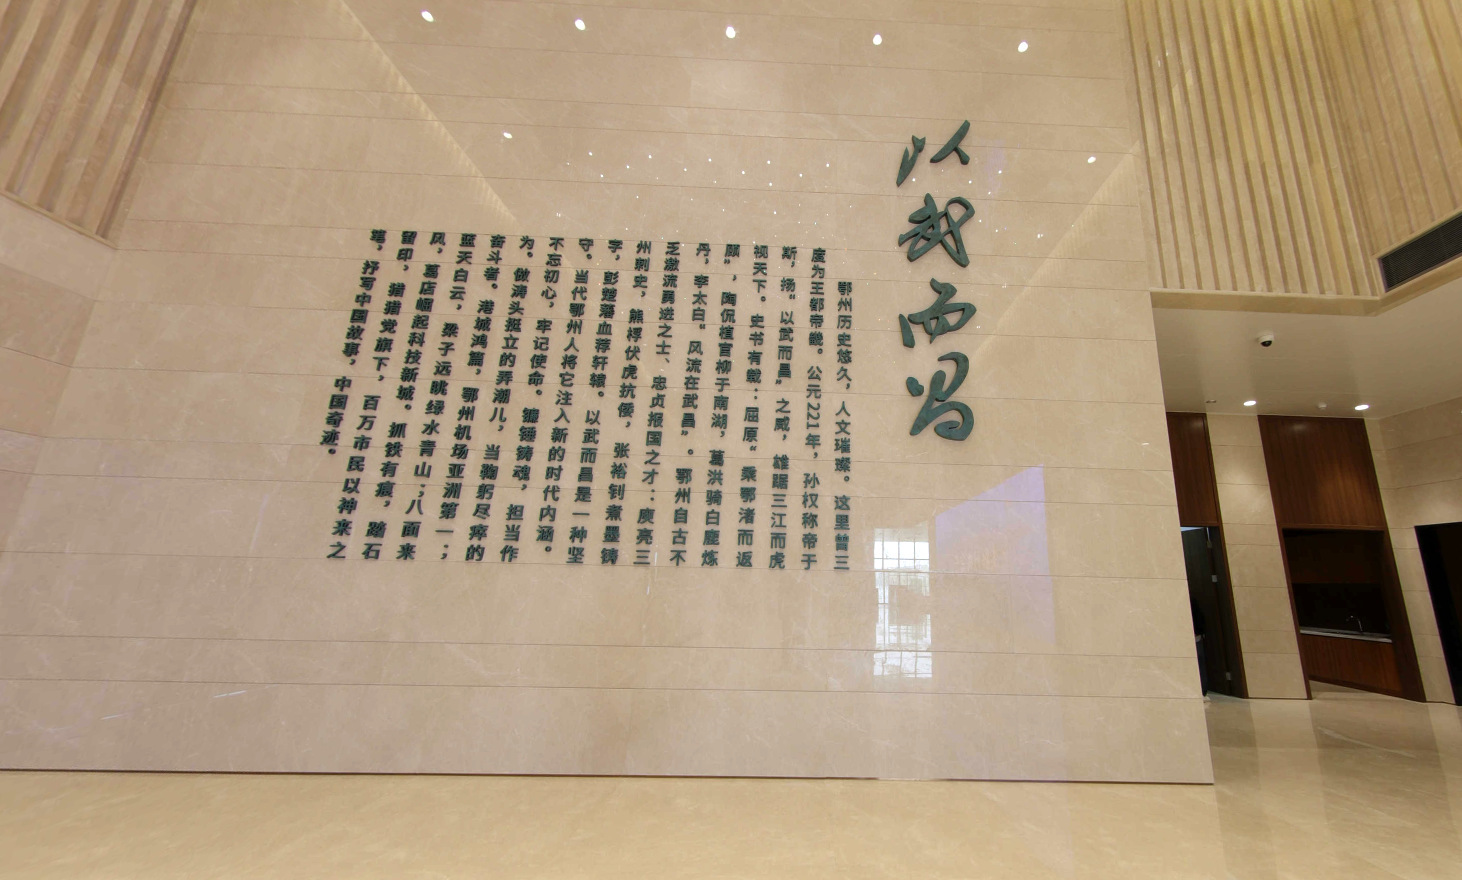 以武而昌
鄂州历史悠久，人文璀璨。这里曾三
度为王都帝畿。公元221年，孙权称帝于
斯，扬“以武而昌”之威，雄踞三江而虎
视天下。史书有载：屈原“乘鄂渚而返
顾”，陶侃植官柳于南湖，葛洪骑白鹿炼
丹，李太白“风流在武昌”。鄂州自古不
乏激流勇进之士、忠贞报国之才：庾亮三
州刺史，熊桴伏虎抗倭，张裕钊煮墨铸
字，彭楚藩血荐轩辕。以武而昌是一种坚
守。当代鄂州人将它注入新的时代内涵。
不忘初心，牢记使命。镰锤铸魂，担当作
为。做涛头挺立的弄潮儿，当鞠躬尽瘁的
奋斗者。港城鸿篇，鄂州机场亚洲第一；
蓝天白云，梁子远眺绿水青山；八面来
风，葛店崛起科技新城。抓铁有痕，踏石
留印，猎猎党旗下，百万市民以神来之
笔，抒写中国故事，中国奇迹。